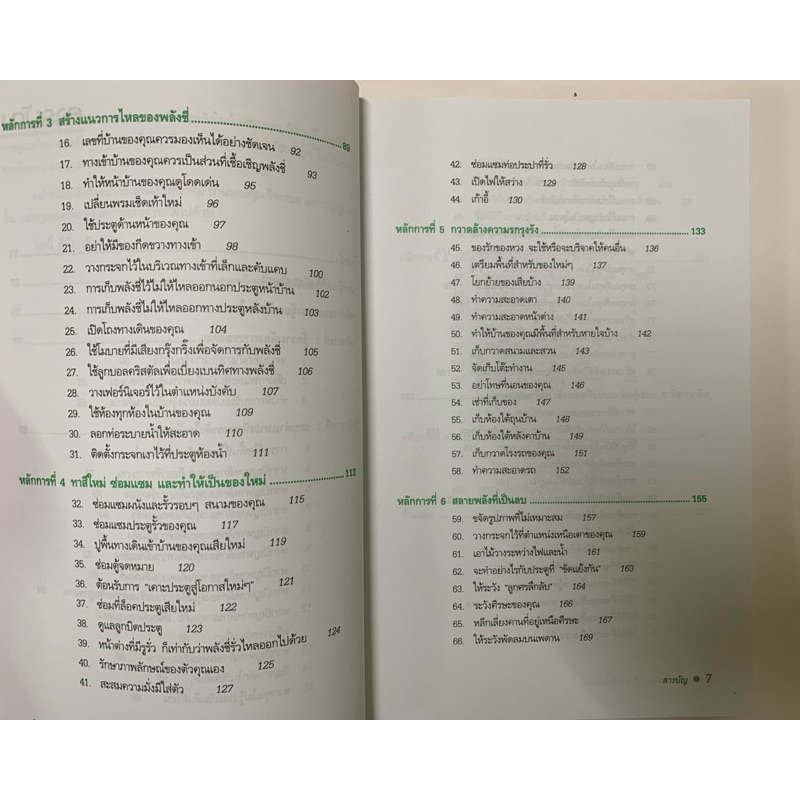 หลักการที่ 3 สร้างแนวการไหลของพลังชี่ 89
16. เลขที่บ้านของคุณควรมองเห็นได้อย่างชัดเจน 92
17. ทางเข้าบ้านของคุณควรเป็นส่วนที่เชื้อเชิญพลังชี่ 93
18. ทำให้หน้าบ้านของคุณดูโดดเด่น 95
19. เปลี่ยนพรมเช็ดเท้าใหม่ 96
20. ใช้ประตูด้านหน้าของคุณ 97
21. อย่าให้มีของกีดขวางทางเข้า 98
22. วางกระจกไว้ในบริเวณทางเข้าที่เล็กและคับแคบ 100
23. การเก็บพลังชี่ไว้ไม่ให้ไหลออกนอกประตูหน้าบ้าน 102
24. การเก็บพลังชี่ไม่ให้ไหลออกทางประตูหลังบ้าน 103
25. เปิดโถงทางเดินของคุณ 104
26. ใช้โมบายที่มีเสียงกรุ๊งกริ๊งเพื่อจัดการกับพลังชี่ 105
27. ใช้ลูกบอลคริสตัลเพื่อเบี่ยงเบนทิศทางพลังชี่ 106
28. วางเฟอร์นิเจอร์ไว้ในตำแหน่งบังคับ 107
29. ใช้ห้องทุกห้องในบ้านของคุณ 109
30. ลอกท่อระบายน้ำให้สะอาด 110
31. ติดตั้งกระจกเงาไว้ที่ประตูห้องน้ำ 111
หลักการที่ 4 ทาสีใหม่ ซ่อมแซม และทำให้เป็นของใหม่ 113
32. ซ่อมแซมผนังและรั้วรอบๆ สนามของคุณ 115
33. ซ่อมแซมประตูรั้วของคุณ 117
34. ปูพื้นทางเดินเข้าบ้านของคุณเสียใหม่ 119
35. ซ่อมตู้จดหมาย 120
36. ต้อนรับการ "เคาะประตูสู่โอกาสใหม่ๆ" 121
37. ซ่อมที่ล็อคประตูเสียใหม่ 122
38. ดูแลลูกบิดประตู 123
39. หน้าต่างที่มีรูรั่ว ก็เท่ากับว่าพลังชี่รั่วไหลออกไปด้วย 124
40. รักษาภาพลักษณ์ของตัวคุณเอง 125
41. สะสมความมั่งมีใส่ตัว 127
42. ซ่อมแซมท่อประปาที่รั่ว 128
43. เปิดไฟให้สว่าง 129
44. เก้าอี้ 130
หลักการที่ 5 กวาดล้างความรกรุงรัง 133
45. ของรักของหวง จะใช้หรือจะบริจาคให้คนอื่น 136
46. เตรียมพื้นที่สำหรับของใหม่ๆ 137
47. โยกย้ายของเสียบ้าง 139
48. ทำความสะอาดเตา 140
49. ทำความสะอาดหน้าต่าง 141
50. ทำให้บ้านของคุณมีพื้นที่สำหรับหายใจบ้าง 142
51. เก็บกวาดสนามและสวน 143
52. จัดเก็บโต๊ะทำงาน 145
53. อย่าโทษที่นอนของคุณ 146
54. เช่าที่เก็บของ 147
55. เก็บห้องใต้ถุนบ้าน 148
56. เก็บห้องใต้หลังคาบ้าน 149
57. เก็บกวาดโรงรถของคุณ 151
58. ทำความสะอาดรถ 152
หลักการที่ 6 สลายพลังที่เป็นลบ 155
59. ขจัดรูปภาพที่ไม่เหมาะสม 157
60. วางกระจกไว้ที่ตำแหน่งเหนือเตาของคุณ 159
61. เอาไม้วางระหว่างไฟและน้ำ 161
62. จะทำอย่างไรกับประตูที่ "ขัดแย้งกัน" 163
63. ให้ระวัง "ลูกศรลึกลับ" 164
64. ระวังศีรษะของคุณ 166
65. หลีกเลี่ยงคานที่อยู่เหนือศีรษะ 167
66. ให้ระวังพัดลมบนเพดาน 169
สารบัญ 7